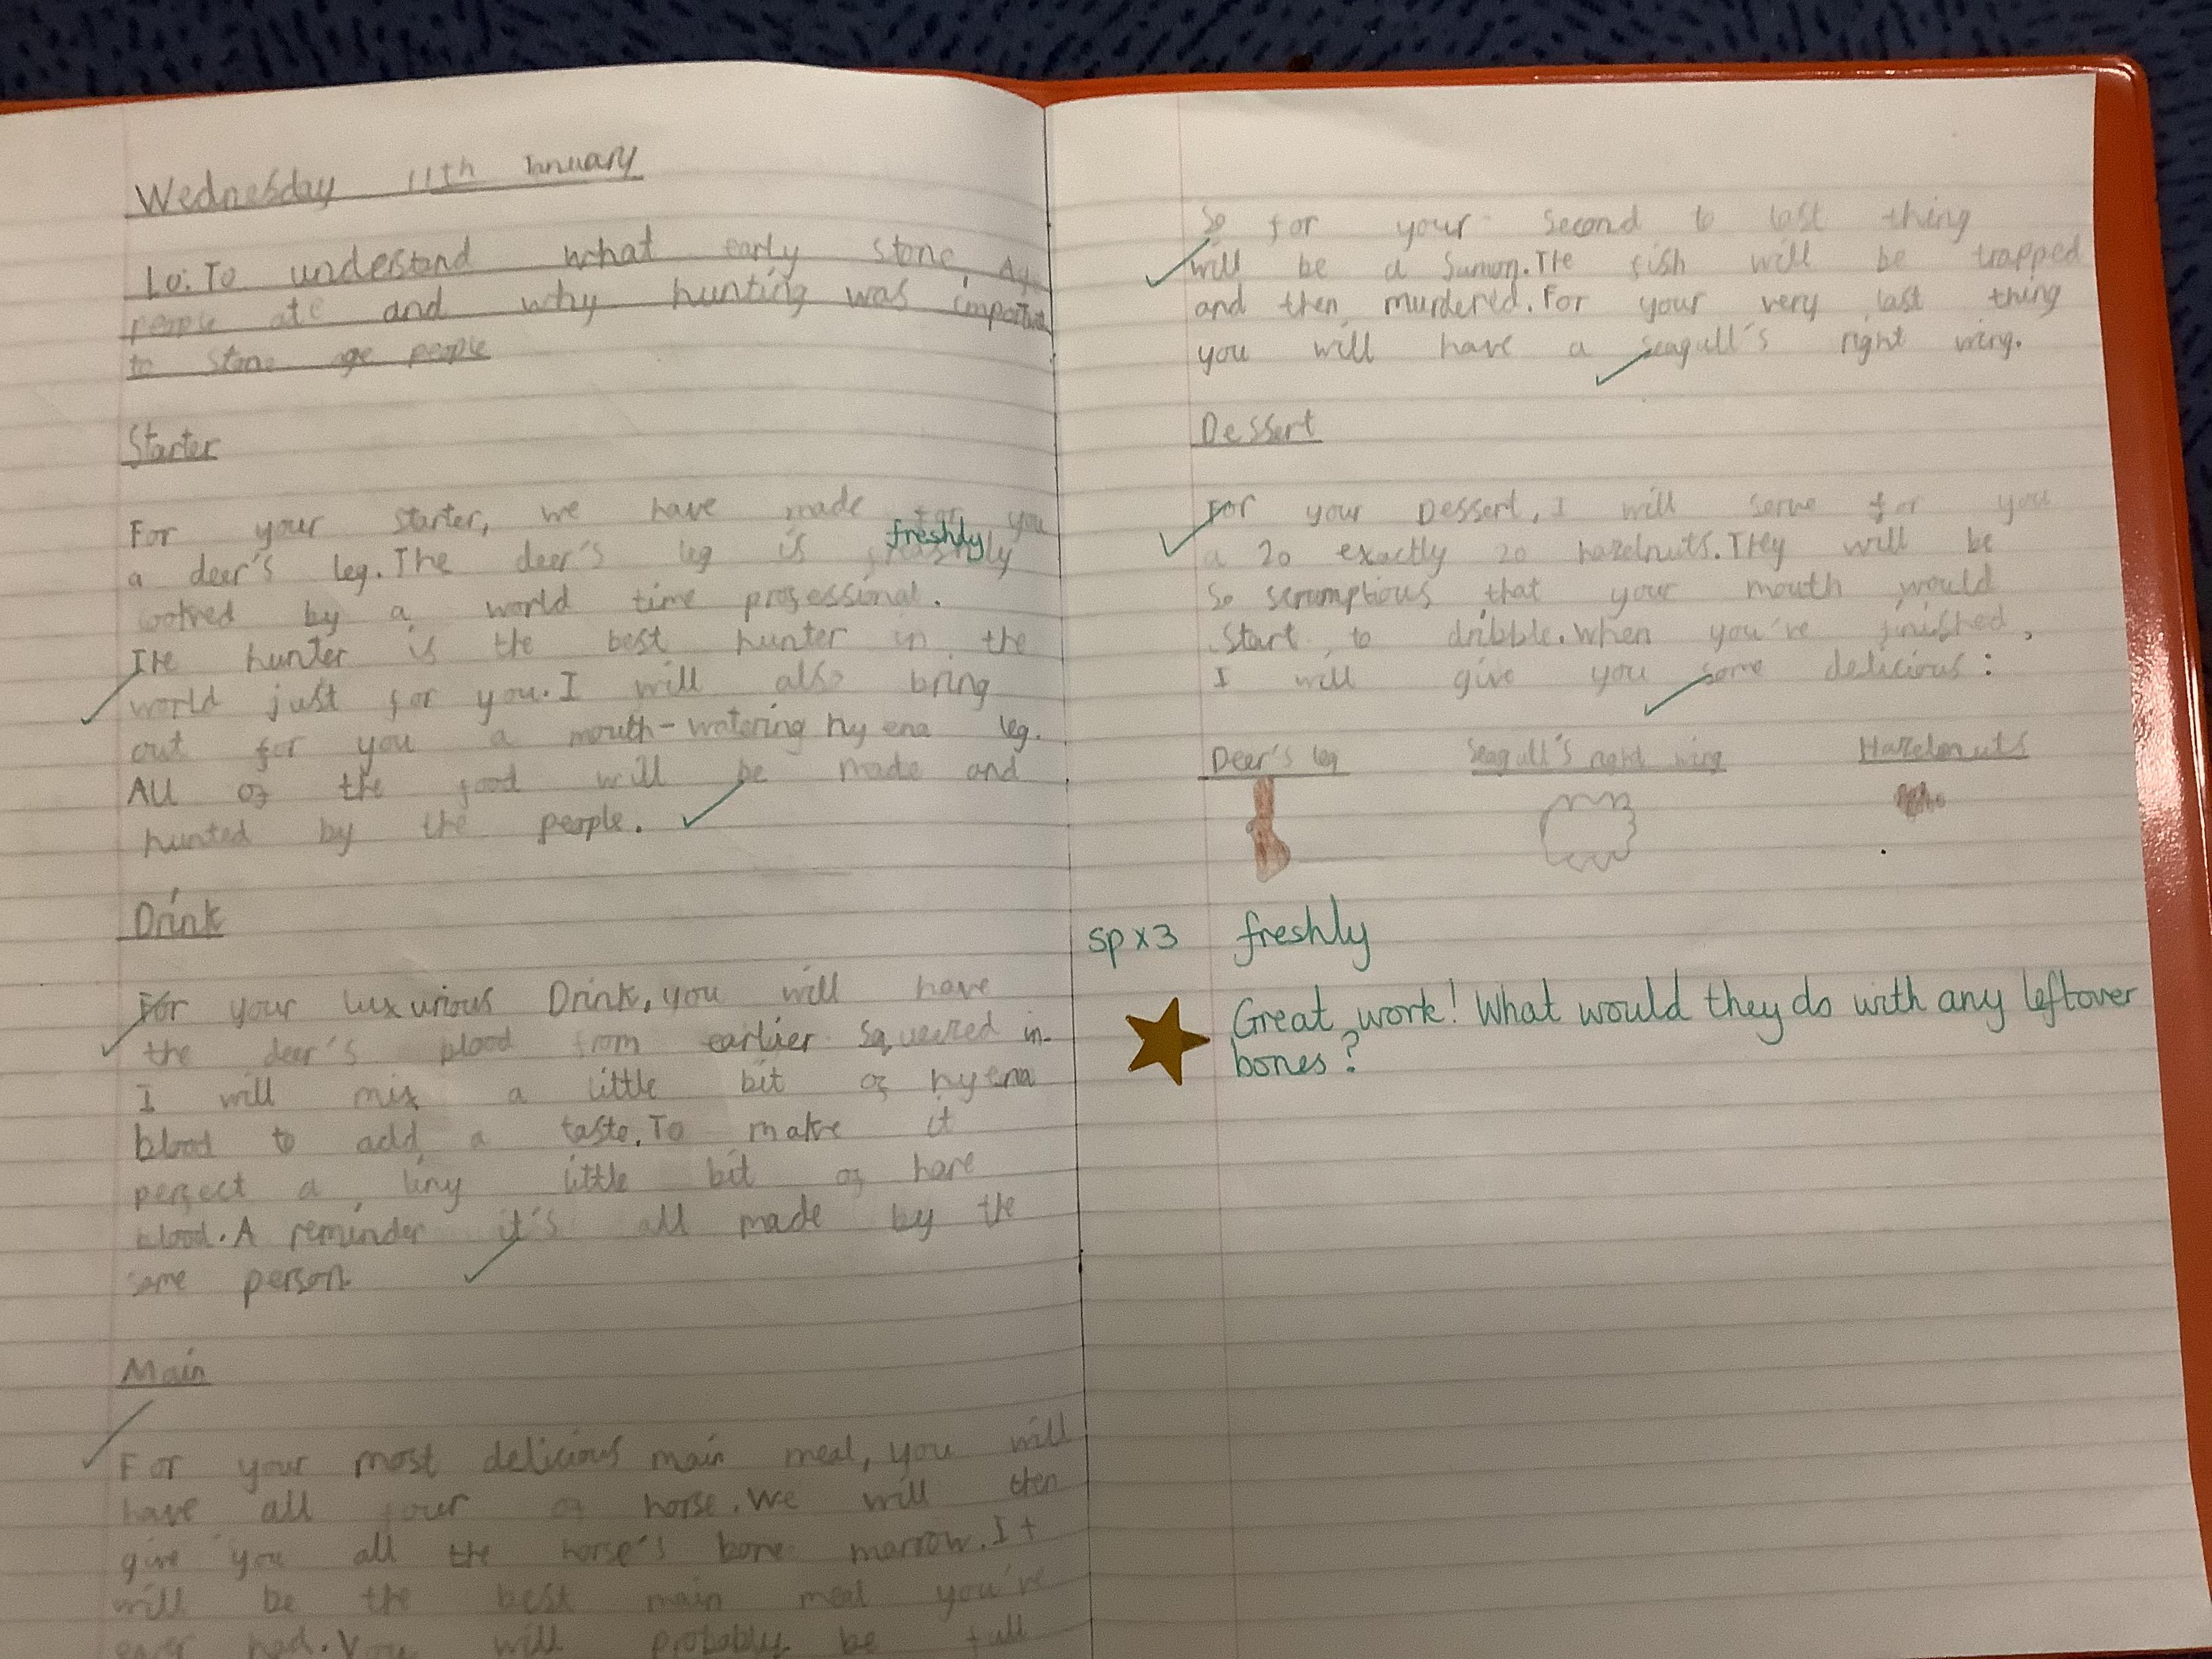 Wednesday 11th January
Lo: To understand what early stone Ag
people ate and why hunting was important
to stone age people
Starter
For your starter, we have made for you
a deer's leg. The deer's leg is freashly
freshly
cooked by a world time professional.
The hunter is the best hunter in the
world just for you. I will also bring
out for you a mouth-watering hyena leg.
All of the food will be made and
hunted by the people.
Drink
For your luxurious Drink, you will have
the deer's blood from earlier. Squeezed in.
I will mix a little bit of hyena
blood to add a taste. To make it
perfect a tiny little bit of hare
blood. A reminder it's all made by the
same person.
Main
For your most delicious main meal, you will
have all four of horse. We will then
give you all the horse's bone marrow. It
will be the best main meal you've
ever had. You will probably be full
So for your second to last thing
will be a Sumon. The fish will be trapped
and then murdered. For your very last thing
you will have a seagull's right wing.
Dessert
For your Dessert, I will serve for you
a 20 exactly 20 hazelnuts. They will be
so scrumptious that your mouth would
start to dribble. When you've finished,
I will give you some delicious:
Deer's leg Seagull's right wing Hazelnuts
sp x3 freshly
Great work! What would they do with any leftover
bones?